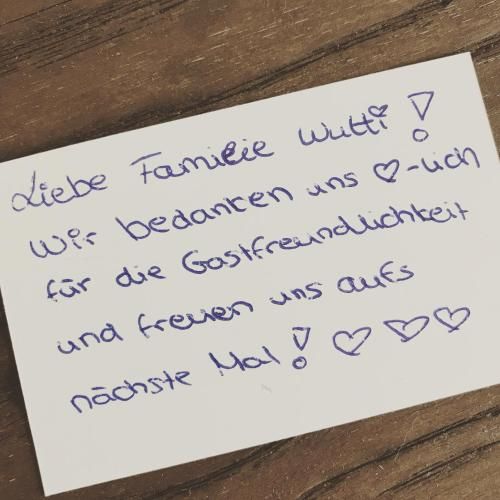 Liebe Familie Wutti!
Wir bedanken uns ♡-lich
für die Gastfreundlichkeit
und freuen uns aufs
nächste Mal! ♡ ♡ ♡